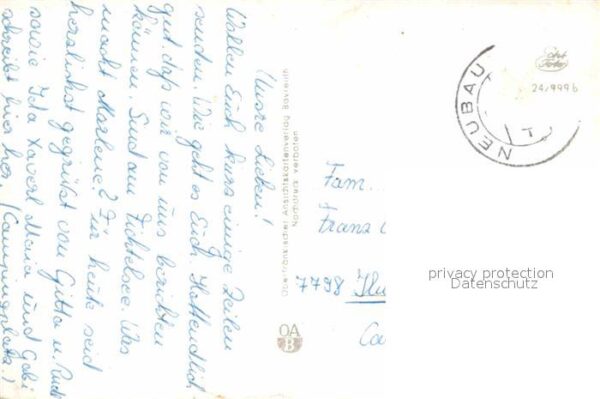 Unsre Lieben!
Wollen Euch kurz einige Zeilen
senden. Wie geht es Euch Hoffendlich
gut. daß wir von uns berichten
können. Sind am Fichtelsee. Was
macht Marlene? Für heute seid
herzlichst gegrüßt von Gitta u. Rudi
sowie Ita Xaverl Maria und Gabi
schreibt hier her. (Campingplatz!)
Oberfränkischer Ansichtskartenverlag Bayreuth
Nachdruck verboten
OA
B
NEUBAU
1
Echt
Foto
24/999 b
Fam.
Franz
7798
privacy protection
Datenschutz